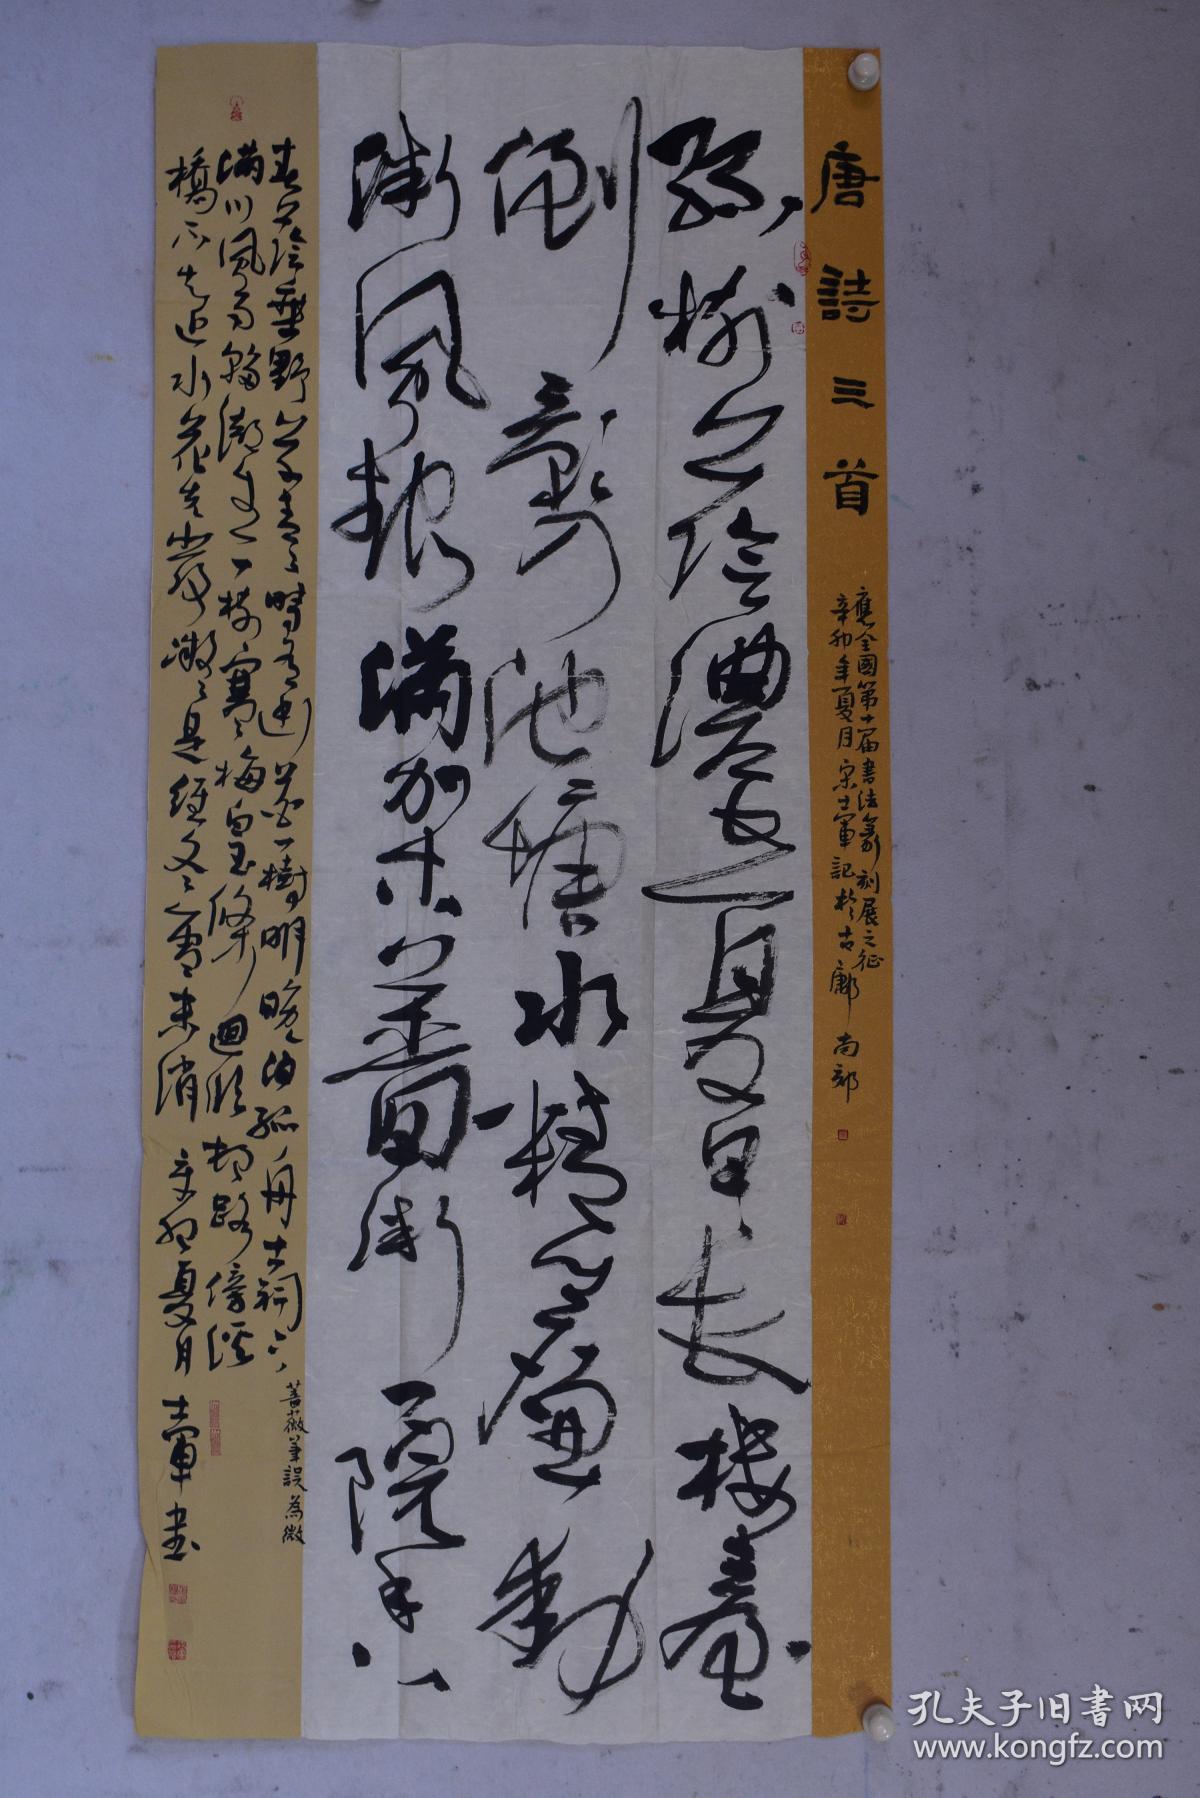 唐詩三首
應全國第十届書法篆刻展之征
辛卯年夏月宋士軍記於古鄘南郊
綠樹陰濃夏日長樓臺
倒影池塘水精簾動
微風起滿架薔微一院香
春陰垂野草青青時有幽花一樹明晚泊孤舟古祠下
滿川風雨看潮生一樹寒梅白玉條迴臨村路傍溪
橋不知近水花先發疑是經冬雪未消 辛卯夏月士軍書
薔薇筆誤為微
孔夫子旧书网
www.kongfz.com